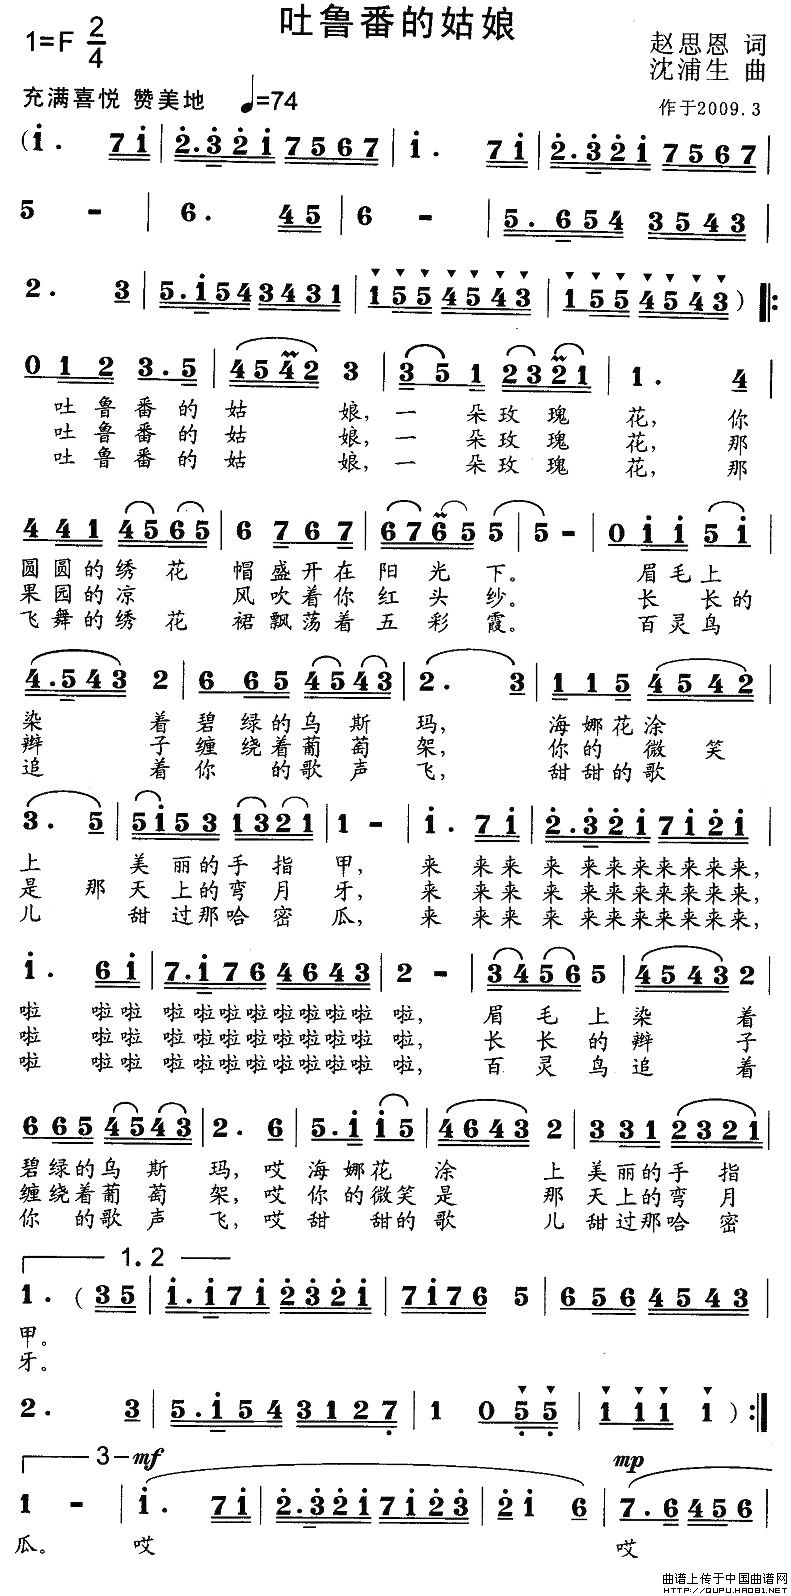 吐鲁番的姑娘
1=F 2/4
赵思恩 词
沈浦生 曲
充满喜悦 赞美地 ♩=74
作于2009.3
(i. 7i | 2.32i 7567 | i. 7i | 2.32i 7567 |
5 - | 6. 45 | 6 - | 5.654 3543 |
2. 3 | 5.i543431 | 155 4543 | 155 4543 ) ‖:
0 12 3.5 | 4542 3 | 3 5 1 2321 | 1. 4 |
吐鲁番的姑 娘, 一 朵玫瑰 花, 你
吐鲁番的姑 娘, 一 朵玫瑰 花, 那
吐鲁番的姑 娘, 一 朵玫瑰 花, 那
4 41 4565 | 6 767 | 67655 | 5 - | 0 i i 5 i |
圆圆的绣花 帽盛开在阳光 下。 眉毛上
果园的凉 风吹着你红头 纱。 长长的
飞舞的绣花 裙飘荡着五彩 霞。 百灵鸟
4.543 2 | 6 65 4543 | 2. 3 | 1 15 4542 |
染 着碧绿的乌斯 玛, 海娜花涂
辫 子缠绕着葡萄 架, 你的微笑
追 着你 的歌声 飞, 甜甜的歌
3. 5 | 5i53 1321 | 1 - | i. 7i | 2.32i 7i2i |
上 美丽的手指 甲, 来 来来 来 来来来来来来,
是 那天上的弯月 牙, 来 来来 来 来来来来来来,
儿 甜过那哈密 瓜, 来 来来 来 来来来来来来,
i. 6i | 7.i76 4643 | 2 - | 34565 | 4543 2 |
啦 啦啦 啦 啦啦啦啦啦啦 啦, 眉毛上染 着
啦 啦啦 啦 啦啦啦啦啦啦 啦, 长长的辫 子
啦 啦啦 啦 啦啦啦啦啦啦 啦, 百灵鸟追 着
6 65 4543 | 2. 6 | 5.i i5 | 4643 2 | 3 31 2321 |
碧绿的乌斯 玛, 哎海娜花 涂 上美丽的手指
缠绕着葡萄 架, 哎你的微笑是 那天上的弯月
你 的歌声 飞, 哎甜 甜的歌 儿甜过那哈密
1.2
1. (35 | i.i7i 232i | 7i76 5 | 656 4543 |
甲。
牙。
2. 3 | 5.i54 3127 | 1 0 55 | i ii i ) :‖
3 mf mp
1 - | i. 7i | 2.32i 7i23 | 2i 6 | 7.6 456 |
瓜。 哎 哎
曲谱上传于中国曲谱网
HTTP://QUPU.HAO81.NET